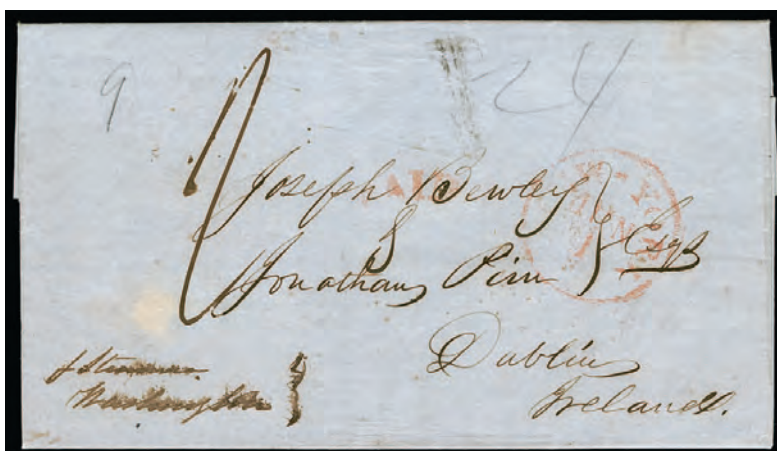 9
24
Joseph Bewley
&
Jonathan Pim
Esqs
Dublin
Ireland.
p Steamer
Washington